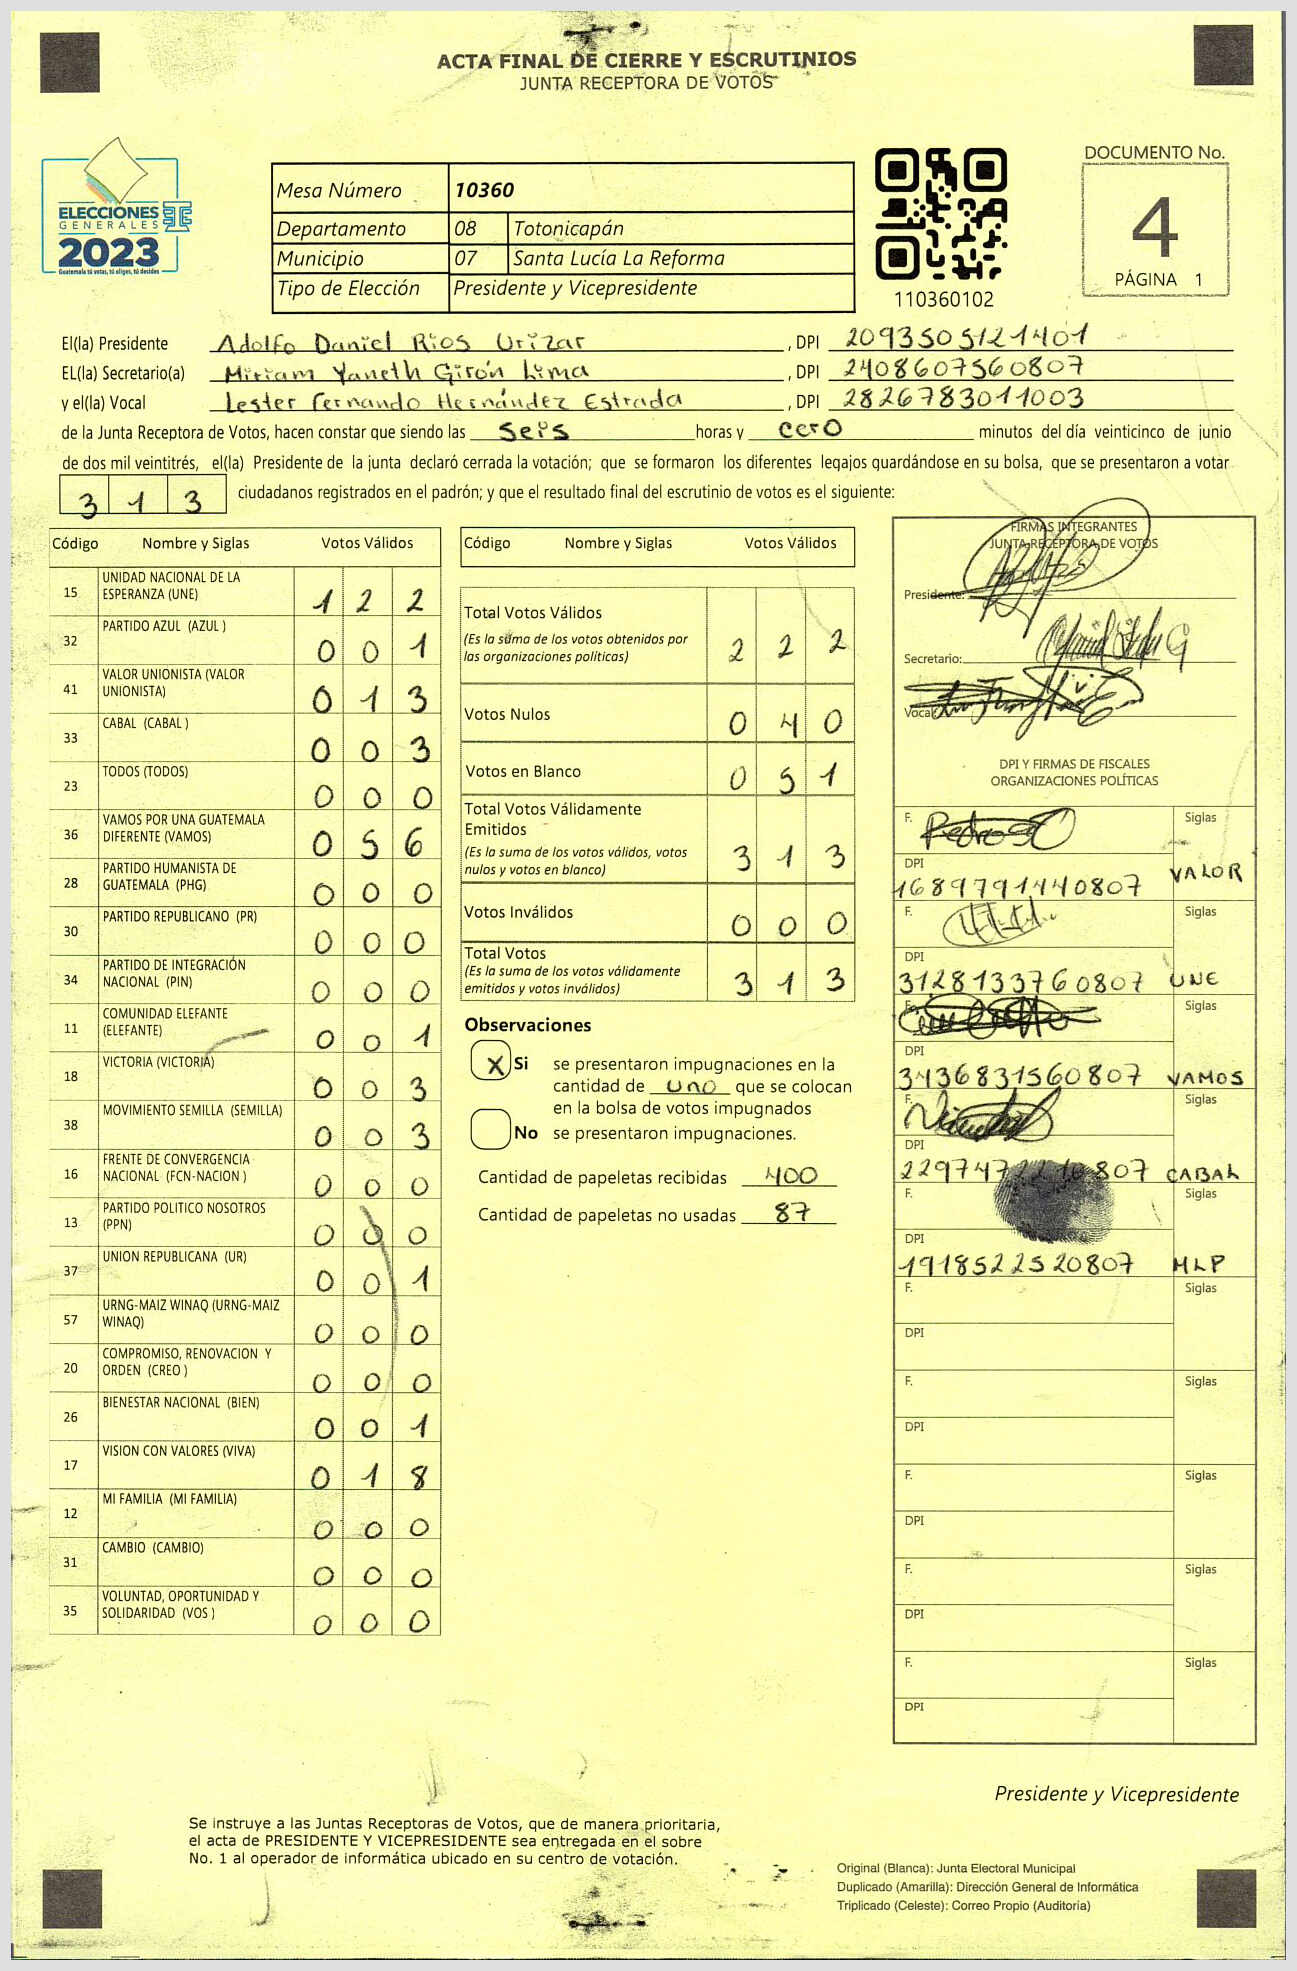 ACTA FINAL DE CIERRE Y ESCRUTINIOS
JUNTA RECEPTORA DE VOTOS
ELECCIONES
GENERALES
2023
Guatemala tú votas, tú eliges, tú decides
Mesa Número 10360
Departamento 08 Totonicapán
Municipio 07 Santa Lucía La Reforma
Tipo de Elección Presidente y Vicepresidente
110360102
DOCUMENTO No.
4
PÁGINA 1
El(la) Presidente Adolfo Daniel Rios Urizar , DPI 2093505121401
EL(la) Secretario(a) Miriam Yaneth Girón Lima , DPI 2408607560807
y el(la) Vocal Lester Fernando Hernández Estrada , DPI 2826783011003
de la Junta Receptora de Votos, hacen constar que siendo las seis horas y cero minutos del día veinticinco de junio
de dos mil veintitrés, el(la) Presidente de la junta declaró cerrada la votación; que se formaron los diferentes legajos guardándose en su bolsa, que se presentaron a votar
3 1 3 ciudadanos registrados en el padrón; y que el resultado final del escrutinio de votos es el siguiente:
Código Nombre y Siglas Votos Válidos
15 UNIDAD NACIONAL DE LA ESPERANZA (UNE) 1 2 2
32 PARTIDO AZUL (AZUL ) 0 0 1
41 VALOR UNIONISTA (VALOR UNIONISTA) 0 1 3
33 CABAL (CABAL ) 0 0 3
23 TODOS (TODOS) 0 0 0
36 VAMOS POR UNA GUATEMALA DIFERENTE (VAMOS) 0 5 6
28 PARTIDO HUMANISTA DE GUATEMALA (PHG) 0 0 0
30 PARTIDO REPUBLICANO (PR) 0 0 0
34 PARTIDO DE INTEGRACIÓN NACIONAL (PIN) 0 0 0
11 COMUNIDAD ELEFANTE (ELEFANTE) 0 0 1
18 VICTORIA (VICTORIA) 0 0 3
38 MOVIMIENTO SEMILLA (SEMILLA) 0 0 3
16 FRENTE DE CONVERGENCIA NACIONAL (FCN-NACION ) 0 0 0
13 PARTIDO POLITICO NOSOTROS (PPN) 0 0 0
37 UNION REPUBLICANA (UR) 0 0 1
57 URNG-MAIZ WINAQ (URNG-MAIZ WINAQ) 0 0 0
20 COMPROMISO, RENOVACION Y ORDEN (CREO ) 0 0 0
26 BIENESTAR NACIONAL (BIEN) 0 0 1
17 VISION CON VALORES (VIVA) 0 1 8
12 MI FAMILIA (MI FAMILIA) 0 0 0
31 CAMBIO (CAMBIO) 0 0 0
35 VOLUNTAD, OPORTUNIDAD Y SOLIDARIDAD (VOS ) 0 0 0
Código Nombre y Siglas Votos Válidos
Total Votos Válidos 2 2 2
(Es la suma de los votos obtenidos por
las organizaciones políticas)
Votos Nulos 0 4 0
Votos en Blanco 0 5 1
Total Votos Válidamente
Emitidos 3 1 3
(Es la suma de los votos válidos, votos
nulos y votos en blanco)
Votos Inválidos 0 0 0
Total Votos 3 1 3
(Es la suma de los votos válidamente
emitidos y votos inválidos)
Observaciones
X Si se presentaron impugnaciones en la
cantidad de uno que se colocan
en la bolsa de votos impugnados
No se presentaron impugnaciones.
Cantidad de papeletas recibidas 400
Cantidad de papeletas no usadas 87
FIRMAS INTEGRANTES
JUNTA RECEPTORA DE VOTOS
Presidente:
Secretario:
Vocal
DPI Y FIRMAS DE FISCALES
ORGANIZACIONES POLÍTICAS
F. Siglas
DPI
1689791440807 VALOR
F. Siglas
DPI
3128133760807 UNE
F. Siglas
DPI
3436831560807 VAMOS
F. Siglas
DPI
CABAL
F. Siglas
DPI
1918522520807 MLP
F. Siglas
DPI
F. Siglas
DPI
F. Siglas
DPI
F. Siglas
DPI
F. Siglas
DPI
Presidente y Vicepresidente
Se instruye a las Juntas Receptoras de Votos, que de manera prioritaria,
el acta de PRESIDENTE Y VICEPRESIDENTE sea entregada en el sobre
No. 1 al operador de informática ubicado en su centro de votación.
Original (Blanca): Junta Electoral Municipal
Duplicado (Amarilla): Dirección General de Informática
Triplicado (Celeste): Correo Propio (Auditoria)